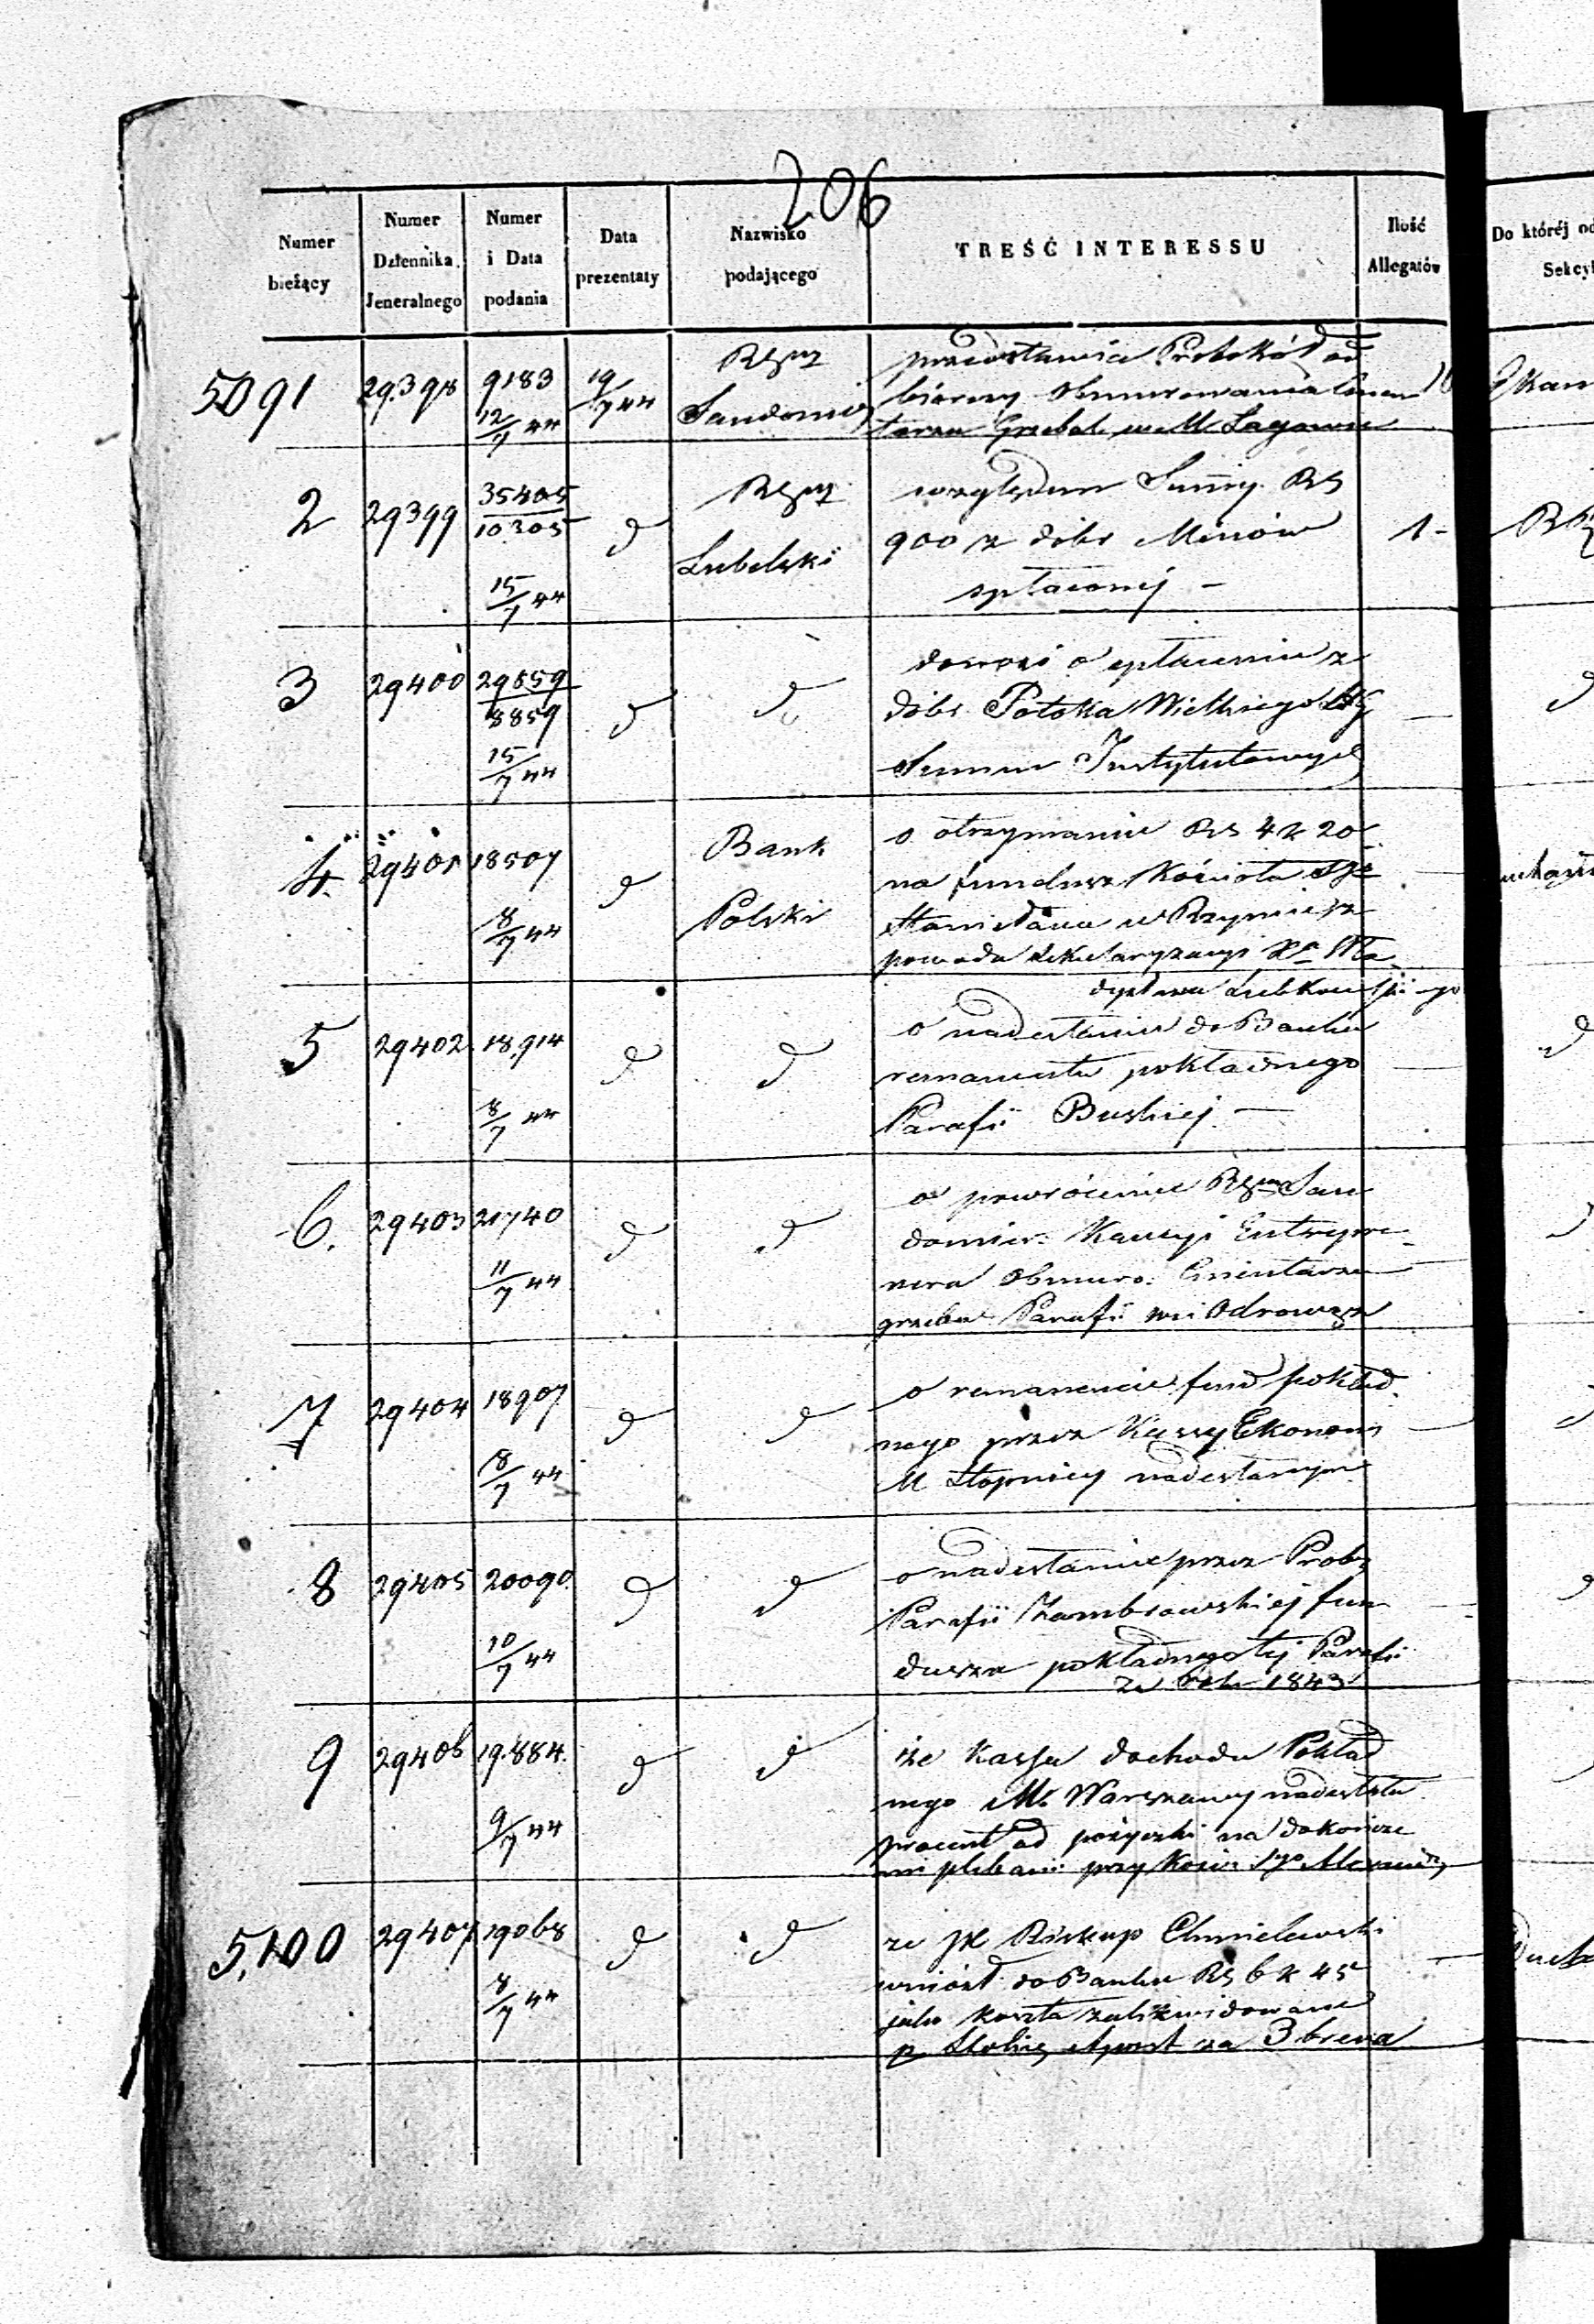 206
Numer bieżący | Numer Dziennika Jeneralnego | Numer i Data podania | Data prezentaty | Nazwisko podającego | TREŚĆ INTERESSU | Ilość Allegatów | Do któréj od
Sekcyi
5091 | 29.398 | 9183 12/7 44 | 19/7 44 | RGuz Sandomir | przedstawia Protokół od
biorczy obmurowania Cmen
tarza Grzebal. w M Łagowie
2 | 29399 | 35405/10305 15/7 44 | d | RGuz Lubelski | względem Summy RS | 1-
900 z dóbr Minów
spłaconej -
3 | 29400 | 29859/8859 15/7 44 | d | d | donosi o spłaceniu z | —
dóbr Potoka Wielkiego
Summ Instytutowych
4. | 29401 | 18507 8/7 44 | d | Bank Polski | o otrzymaniu RS 4 k 20 | —
na fundusz Kościoła Sgo
Stanisława w Rzymie z
powodu sekularyzacyi Xa
5 | 29402 | 18.914 8/7 44 | d | d | o nadesłaniu do Banku | —
remanentu pokładnego
Parafii Buskiej —
6. | 29403 | 21740 11/7 44 | d | d | o powróceniu RGuz San
domier. Kaucyi Entrepre
nera obmuro. Cmentarza
grzeba. Parafii wsi Odrowąż
7 | 29404 | 18907 8/7 44 | d | d | o remanencie fund pokład | —
nego przez Kassy Ekonom
M Stopnicy nadesłanym
8 | 29405 | 20090 10/7 44 | d | d | o nadesłanie przez Prob. | —
Parafii Zambrowskiej fun
duszu pokładnego tej Parafii
za rok 1843
9 | 29406 | 19.884. 9/7 44 | d | d | że Kassa dochodu Pokład
nego M. Warszawy nadesłała
procent od pożyczki na dokończe
nie plebanii przy Kości Sgo
5,100 | 29407 | 19068 8/7 44 | d | d | że JX Biskup Chmielewski | —
wniósł do Banku RS 6 k 45
jako koszta zalikwidowane
p. Stolicę Apost za 3 brewa